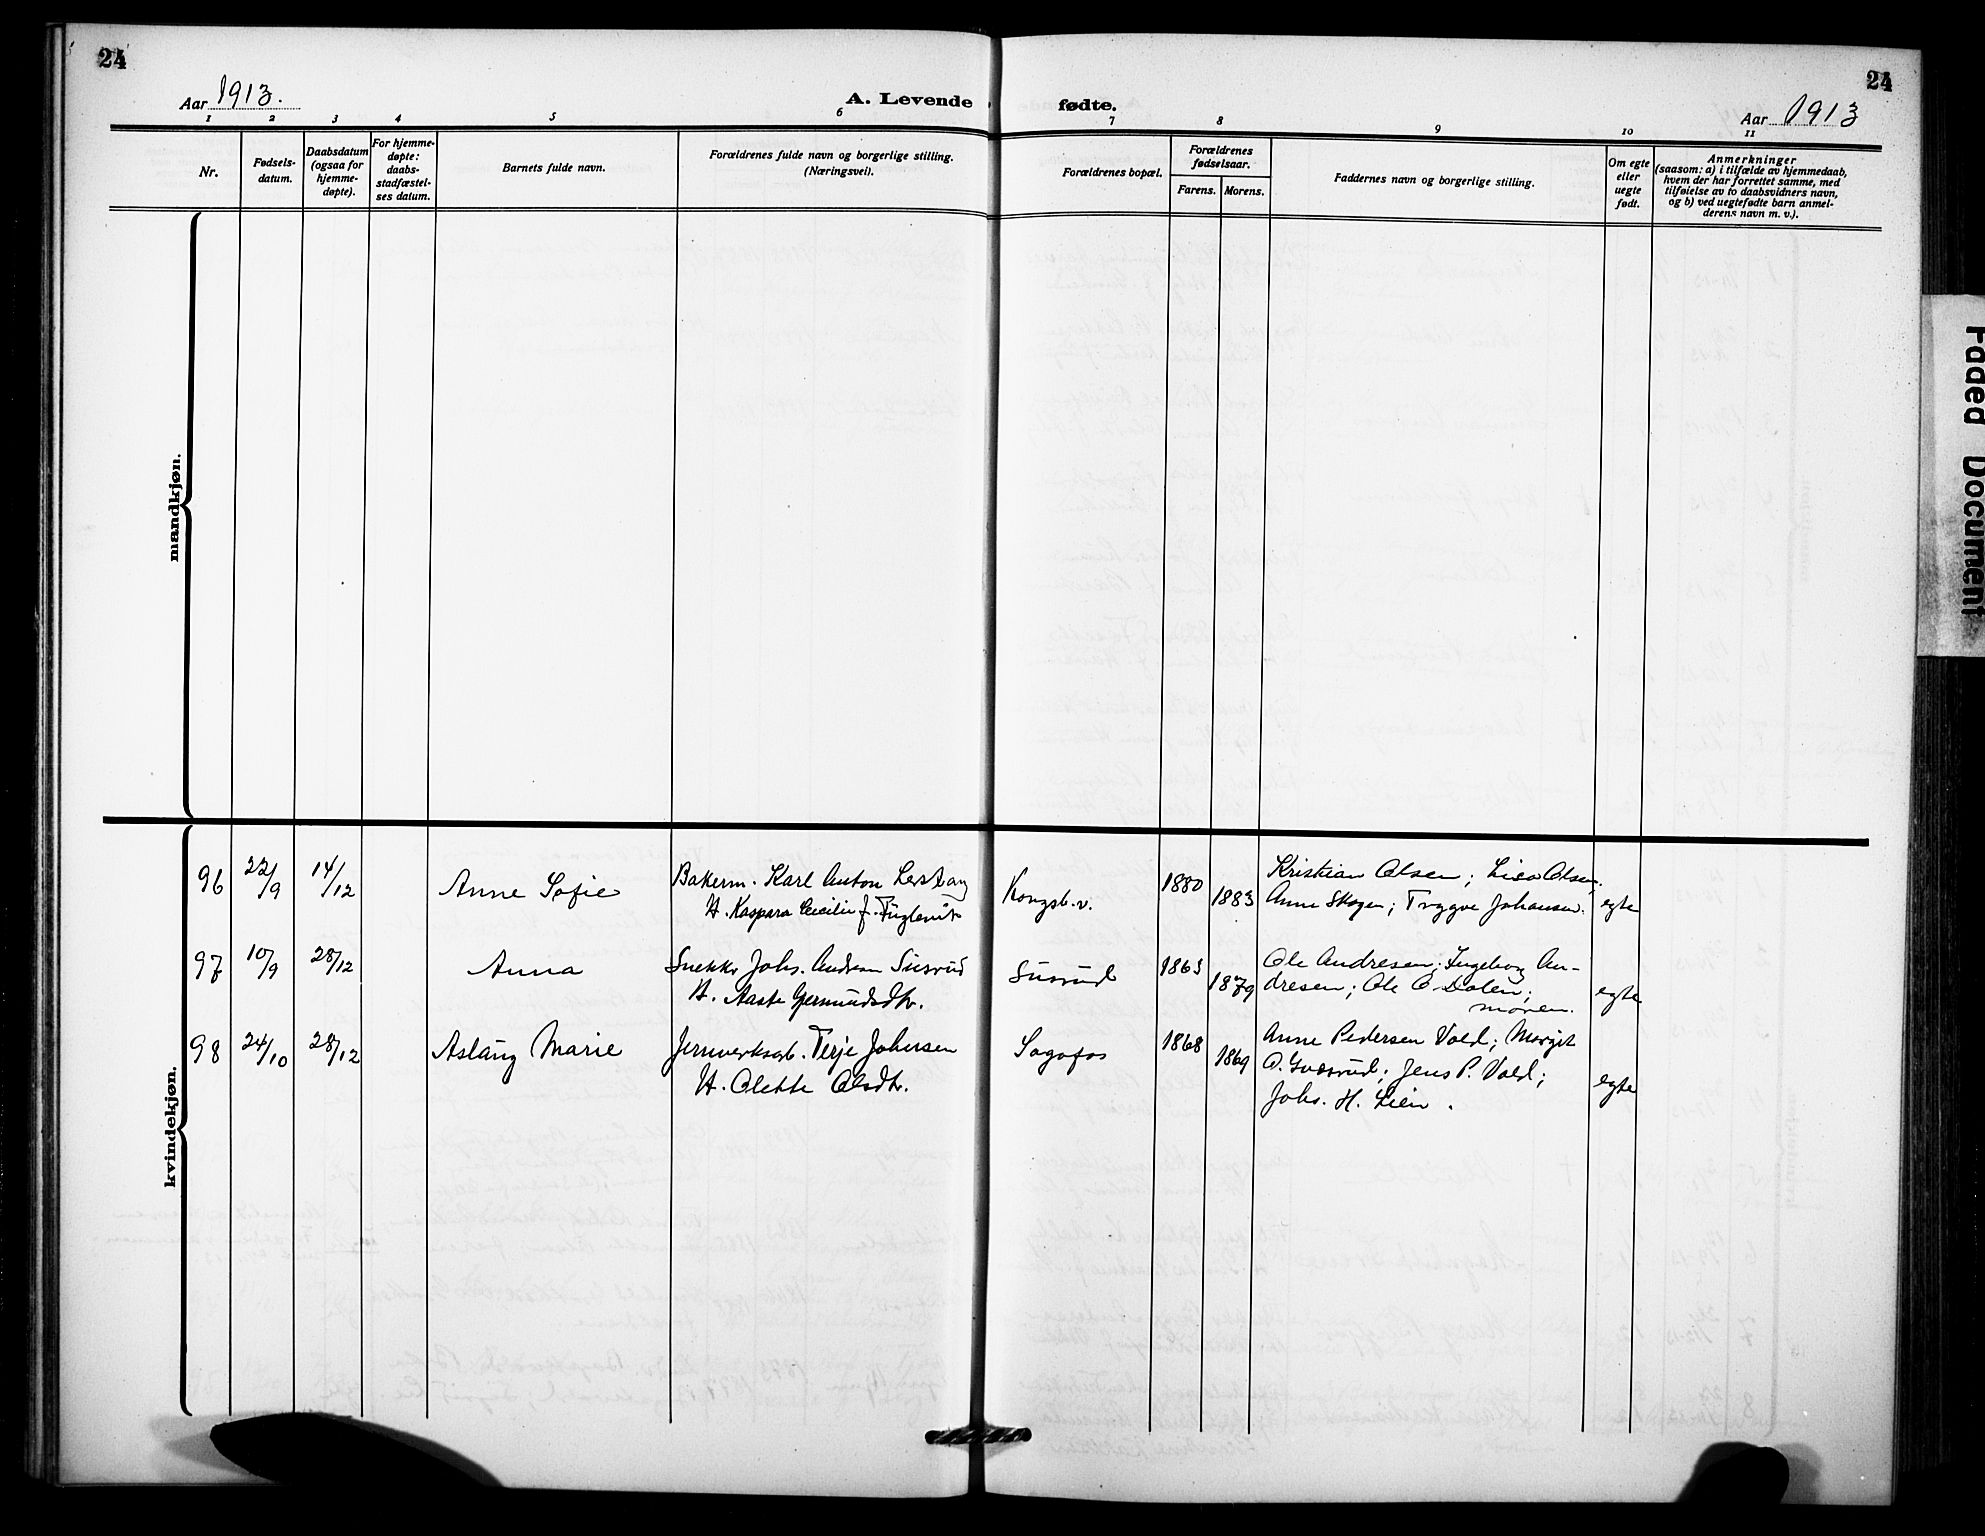 24
24
Aar 1913.
A. Levende fødte.
Aar 1913
1 2 3 4 5 6 7 8 9 10 11
Nr.
Fødsels-
datum.
Daabsdatum
(ogsaa for
hjemme-
døpte).
For hjemme-
døpte:
daabs-
stadfæstel-
ses datum.
Barnets fulde navn.
Forældrenes fulde navn og borgerlige stilling.
(Næringsvei).
Forældrenes bopæl.
Forældrenes
fødselsaar.
Farens. Morens.
Faddernes navn og borgerlige stilling.
Om egte
eller
uegte
født.
Anmerkninger
(saasom: a) i tilfælde av hjemmedaab,
hvem der har forrettet samme, med
tilføielse av to daabsvidners navn,
og b) ved uegtefødte barn anmel-
derens navn m. v.).
mandkjøn.
kvindekjøn.
96 22/9 14/12 Anne Sofie
Bakerm. Karl Anton
H. Kaspara Cecilie f. Fuglevik
Kongsb. v. 1880 1883
Kristian Olsen; Lisa Olsen.
Anne Skogen; Trygve Johansen.
egte
97 10/9 28/12 Anna
Snekker Johs. Andersen Susrud
H. Aaste Gjermundsdtr.
Susrud 1863 1879
Ole Andresen; Ingeborg An-
dresen; Ole O. Dalen;
moren.
egte
98 24/10 28/12 Aslaug Marie
Jernverksarb. Terje Johnsen
H. Olette Olsdtr.
Sagafos 1868 1869
Anne Pedersen Vold; Margit
O. ; Jens P. Vold;
Johs. H. Lien.
egte
Faded Document